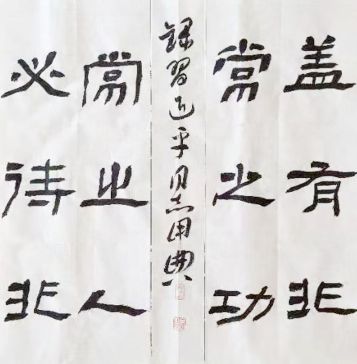 盖有非
常之功
必待非
常之人
錄習近平同志用典